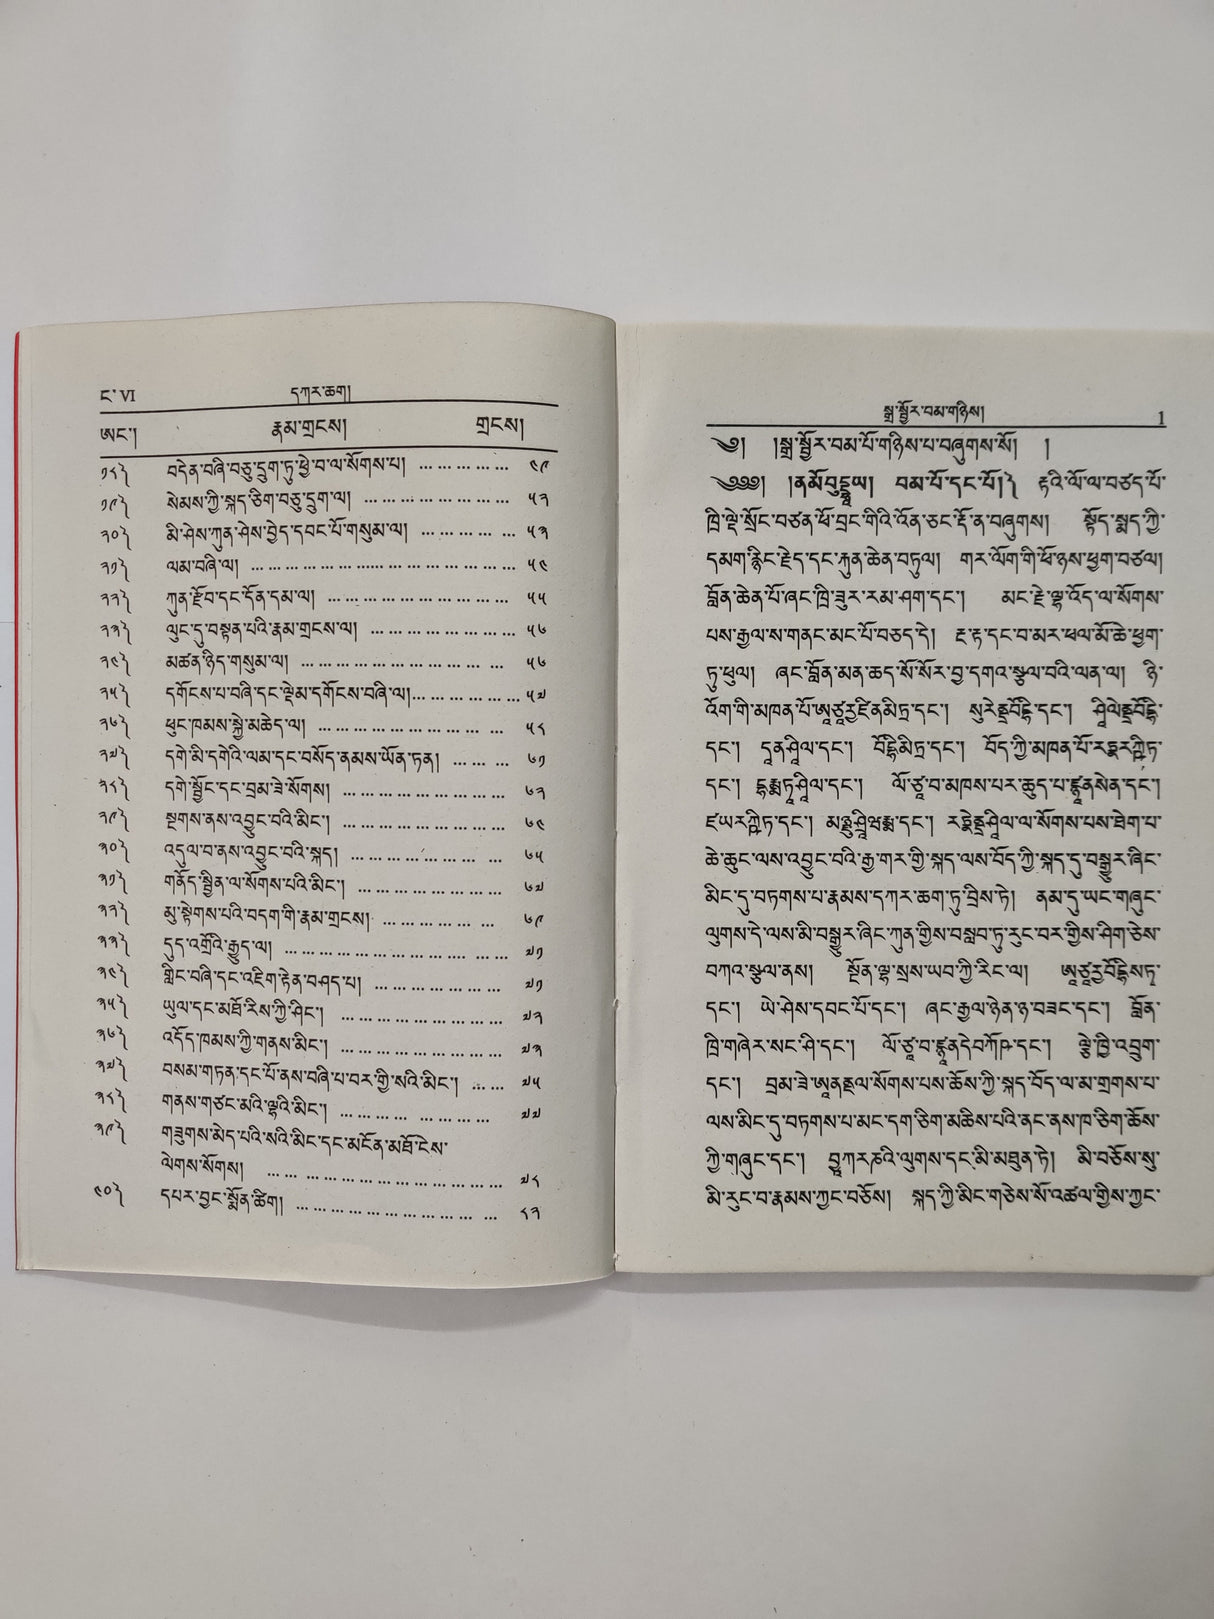 ང་ VI དཀར་ཆག།
ཨང་། རྣམ་གྲངས། གྲངས།
༡༨༽ བདེན་བཞི་བཅུ་དྲུག་ཏུ་ཕྱེ་བ་ལ་སོགས་པ། … … … … … ༤༩
༡༩༽ སེམས་ཀྱི་སྐད་ཅིག་བཅུ་དྲུག་ལ། … … … … … … … … … ༥༢
༢༠༽ མི་ཤེས་ཀུན་ཤེས་བྱེད་དབང་པོ་གསུམ་ལ། … … … … … … ༥༣
༢༡༽ ལམ་བཞི་ལ། … … … … … … … … … … … … … … … ༥༤
༢༢༽ ཀུན་རྫོབ་དང་དོན་དམ་ལ། … … … … … … … … … … … ༥༥
༢༣༽ ལུང་དུ་བསྟན་པའི་རྣམ་གྲངས་ལ། … … … … … … … … ༥༦
༢༤༽ མཚན་ཉིད་གསུམ་ལ། … … … … … … … … … … … … ༥༦
༢༥༽ དགོངས་པ་བཞི་དང་ལྡེམ་དགོངས་བཞི་ལ། … … … … … … ༥༧
༢༦༽ ཕུང་ཁམས་སྐྱེ་མཆེད་ལ། … … … … … … … … … … … ༥༨
༢༧༽ དགེ་མི་དགེའི་ལམ་དང་བསོད་ནམས་ཡོན་ཏན། … … … ༦༡
༢༨༽ དགེ་སྦྱོང་དང་བྲམ་ཟེ་སོགས། … … … … … … … … … ༦༢
༢༩༽ སྔགས་ནས་འབྱུང་བའི་མིང་། … … … … … … … … … ༦༤
༣༠༽ འདུལ་བ་ནས་འབྱུང་བའི་སྐད། … … … … … … … … … ༦༥
༣༡༽ གནོད་སྦྱིན་ལ་སོགས་པའི་མིང་། … … … … … … … … ༦༧
༣༢༽ མུ་སྟེགས་པའི་བདག་གི་རྣམ་གྲངས། … … … … … … ༦༩
༣༣༽ དུད་འགྲོའི་རྒྱུད་ལ། … … … … … … … … … … … … … ༧༡
༣༤༽ གླིང་བཞི་དང་འཇིག་རྟེན་བཤད་པ། … … … … … … … ༧༡
༣༥༽ ཡུལ་དང་མཐོ་རིས་ཀྱི་ཤིང་། … … … … … … … … … ༧༢
༣༦༽ འདོད་ཁམས་ཀྱི་གནས་མིང་། … … … … … … … … … ༧༣
༣༧༽ བསམ་གཏན་དང་པོ་ནས་བཞི་པ་བར་གྱི་སའི་མིང་། … … ༧༥
༣༨༽ གནས་གཙང་མའི་ལྷའི་མིང་། … … … … … … … … ༧༧
༣༩༽ གཟུགས་མེད་པའི་སའི་མིང་དང་མངོན་མཐོ་ངེས་
ལེགས་སོགས། … … … … … … … … … … … … … ༧༨
༤༠༽ དཔར་བྱང་སྨོན་ཚིག། … … … … … … … … … … … … ༨༢
སྒྲ་སྦྱོར་བམ་གཉིས། 1
༄༅། །སྒྲ་སྦྱོར་བམ་པོ་གཉིས་པ་བཞུགས་སོ། །
༄༅༅། །ནམོ་བུདྡྷཱཡ། བམ་པོ་དང་པོ།༽ རྟའི་ལོ་ལ་བཙད་པོ་
ཁྲི་ལྡེ་སྲོང་བཙན་ཕོ་བྲང་གིའི་འོན་ཅང་རྡོ་ན་བཞུགས། སྟོད་སྨད་ཀྱི་
དམག་རྙིང་རྗེད་དང་རྐུན་ཆེན་བཏུལ། གར་ལོག་གི་ཕོ་ཉས་ཕྱག་བཙལ།
བློན་ཆེན་པོ་ཞང་ཁྲི་ཟུར་རམ་ཤག་དང་། མང་རྗེ་ལྷ་འོད་ལ་སོགས་
པས་རྒྱལ་ས་གནང་མང་པོ་བཅད་དེ། རྔ་རྟ་དང་བ་མར་ཕལ་མོ་ཆེ་ཕྱག་
ཏུ་ཕུལ། ཞང་བློན་མན་ཆད་སོ་སོར་བྱ་དགའ་སྩལ་བའི་ལན་ལ། ཉི་
འོག་གི་མཁན་པོ་ཨཱཙཱརྱ་ཛིནམིཏྲ་དང་། སུརེནྡྲབོདྷི་དང་། ཤཱིལེནྡྲབོདྷི་
དང་། དཱནཤཱིལ་དང་། བོདྷིམིཏྲ་དང་། བོད་ཀྱི་མཁན་པོ་རཏྣརཀྵིཏ་
དང་། དྷརྨཏཱཤཱིལ་དང་། ལོ་ཙཱ་བ་མཁས་པར་ཆུད་པ་ཛྙཱནསེན་དང་།
ཛཡརཀྵིཏ་དང་། མཉྫུཤྲཱིཝརྨ་དང་། རཏྣེནྡྲཤཱིལ་ལ་སོགས་པས་ཐེག་པ་
ཆེ་ཆུང་ལས་འབྱུང་བའི་རྒྱ་གར་གྱི་སྐད་ལས་བོད་ཀྱི་སྐད་དུ་བསྒྱུར་ཞིང་
མིང་དུ་བཏགས་པ་རྣམས་དཀར་ཆག་ཏུ་བྲིས་ཏེ། ནམ་དུ་ཡང་གཞུང་
ལུགས་དེ་ལས་མི་བསྒྱུར་ཞིང་ཀུན་གྱིས་བསླབ་ཏུ་རུང་བར་གྱིས་ཤིག་ཅེས་
བཀའ་སྩལ་ནས། སྔོན་ལྷ་སྲས་ཡབ་ཀྱི་རིང་ལ། ཨཱཙཱརྱབོདྷིསཏྭ་
དང་། ཡེ་ཤེས་དབང་པོ་དང་། ཞང་རྒྱལ་ཉེན་ཉ་བཟང་དང་། བློན་
ཁྲི་གཞེར་སང་ཤི་དང་། ལོ་ཙཱ་བ་ཛྙཱནདེབཀོཥ་དང་། ལྕེ་ཁྱི་འབྲུག་
དང་། བྲམ་ཟེ་ཨཱནནྡལ་སོགས་པས་ཆོས་ཀྱི་སྐད་བོད་ལ་མ་གྲགས་པ་
ལས་མིང་དུ་བཏགས་པ་མང་དག་ཅིག་མཆིས་པའི་ནང་ནས་ཁ་ཅིག་ཆོས་
ཀྱི་གཞུང་དང་། བྱཱཀརཎའི་ལུགས་དང་མི་མཐུན་ཏེ། མི་བཅོས་སུ་
མི་རུང་བ་རྣམས་ཀྱང་བཅོས། སྐད་ཀྱི་མིང་གཅེས་སོ་འཚལ་གྱིས་ཀྱང་